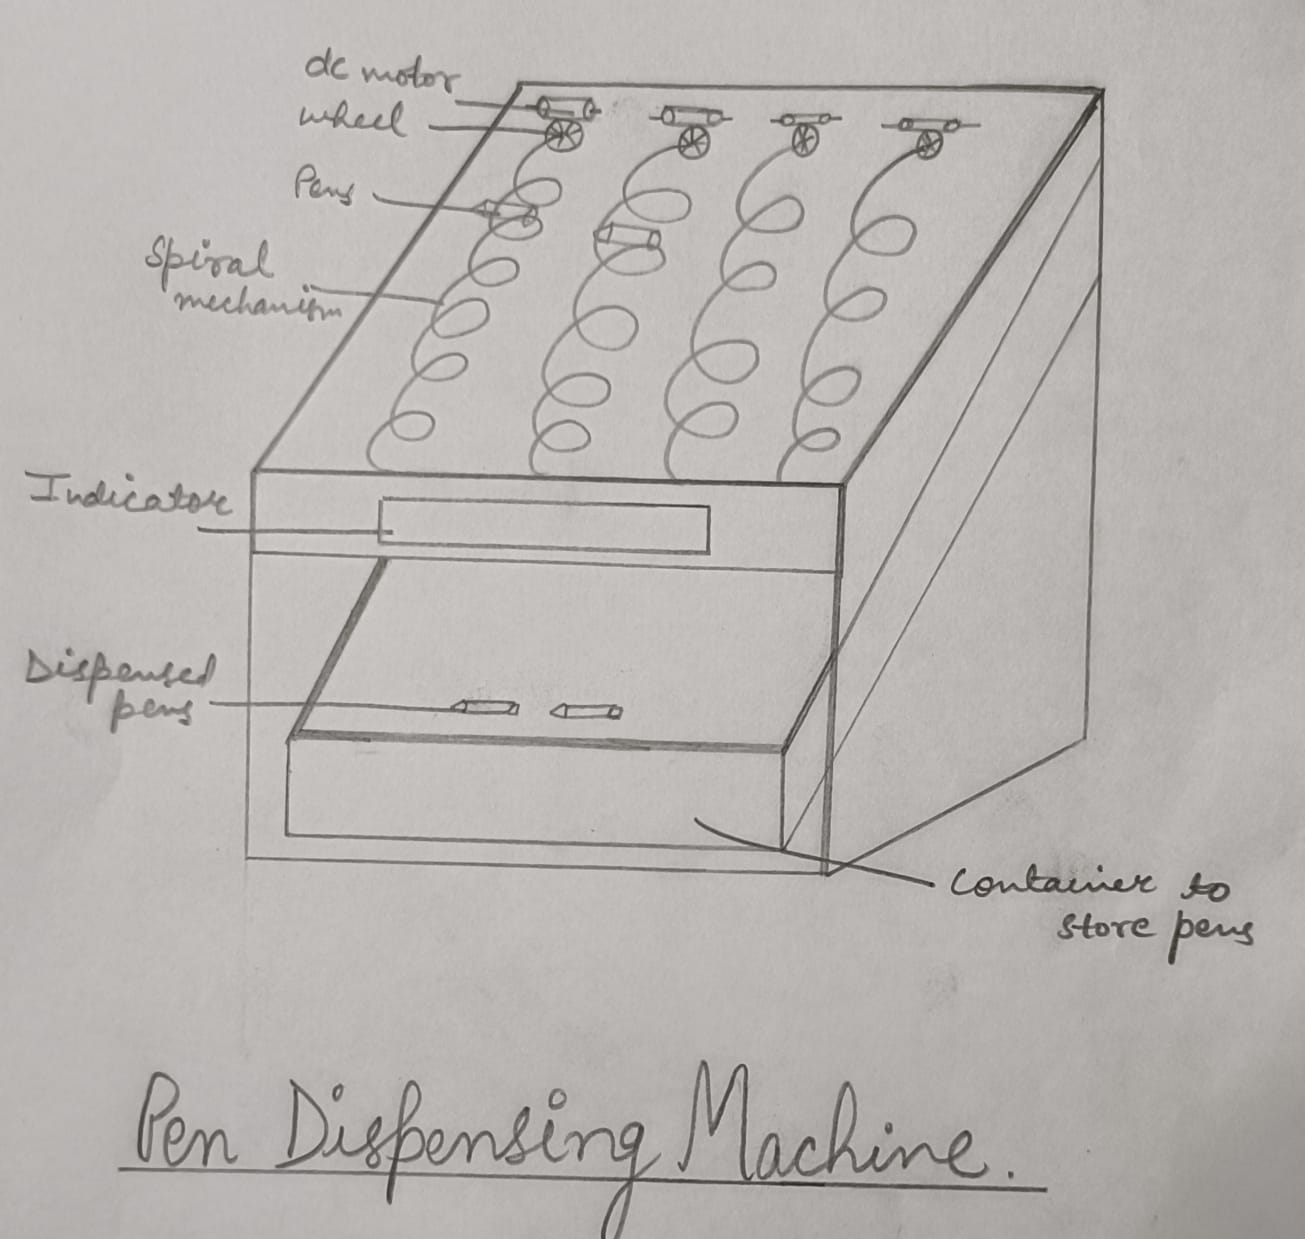 dc motor
wheel
Pens
Spiral
mechanism
Indicator
Dispensed
pens
Container to
store pens
Pen Dispensing Machine.